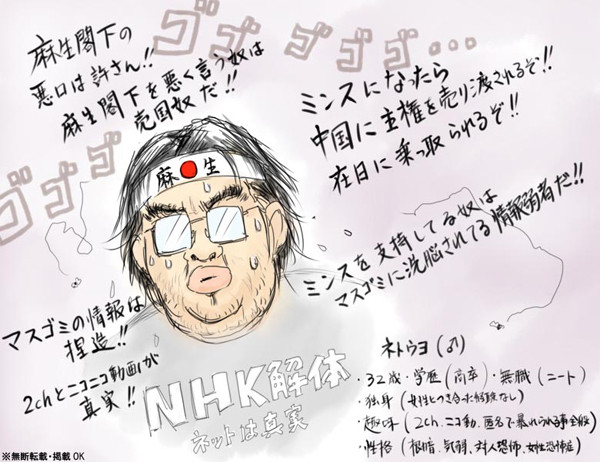 麻生閣下の
悪口は許さん!!
麻生閣下を悪く言う奴は
売国奴だ!!
ゴゴゴゴゴ...
ミンスになったら
中国に主権を売り渡されるぞ!!
在日に乗っ取られるぞ!!
ゴゴゴゴ
麻生
ミンスを支持してる奴は
マスゴミに洗脳されてる情報弱者だ!!
マスゴミの情報は
捏造!!
2chとニコニコ動画が
真実!!
NHK解体
ネットは真実
ネトウヨ(♂)
・32歳・学歴(高卒)・無職(ニート)
・独身(女性とつき合った経験なし)
・趣味(2ch、ニコ動、匿名で暴れられる事全般)
・性格(根暗、気弱、対人恐怖、女性恐怖症)
※無断転載・掲載OK